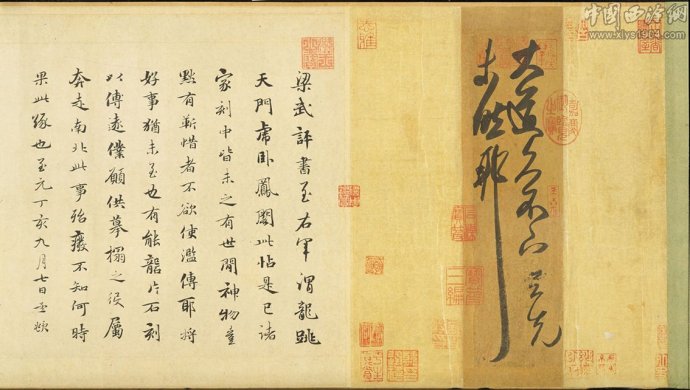 中国西泠网
www.xlys1904.com
大道久不下与先
未然耶
梁武評書至右軍謂龍跳
天門虎卧鳳閣此帖是已諸
家刻中皆未之有世間神物豈
默有靳惜者不欲使濫傳耶將
好事猶未至也有能龍片石刻
以傳遠僕願供摹搨之役屬
奔走南北此事殆癈不知何時
果此緣也至元丁亥九月七日孟頫